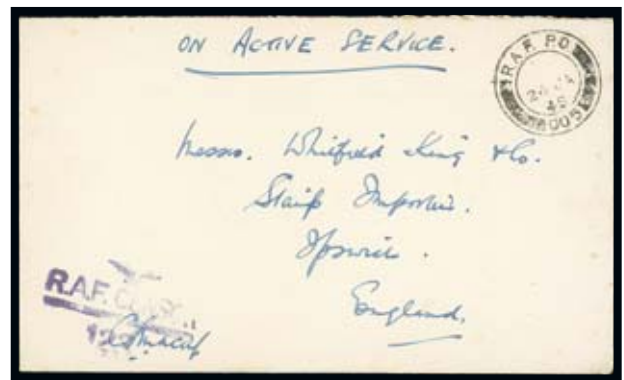 ON ACTIVE SERVICE.
R.A.F. P.O.
24
45
005
Messrs. Whitfield King & Co.
Stamp Importers.
Ipswich.
England.
R.A.F. CENSOR